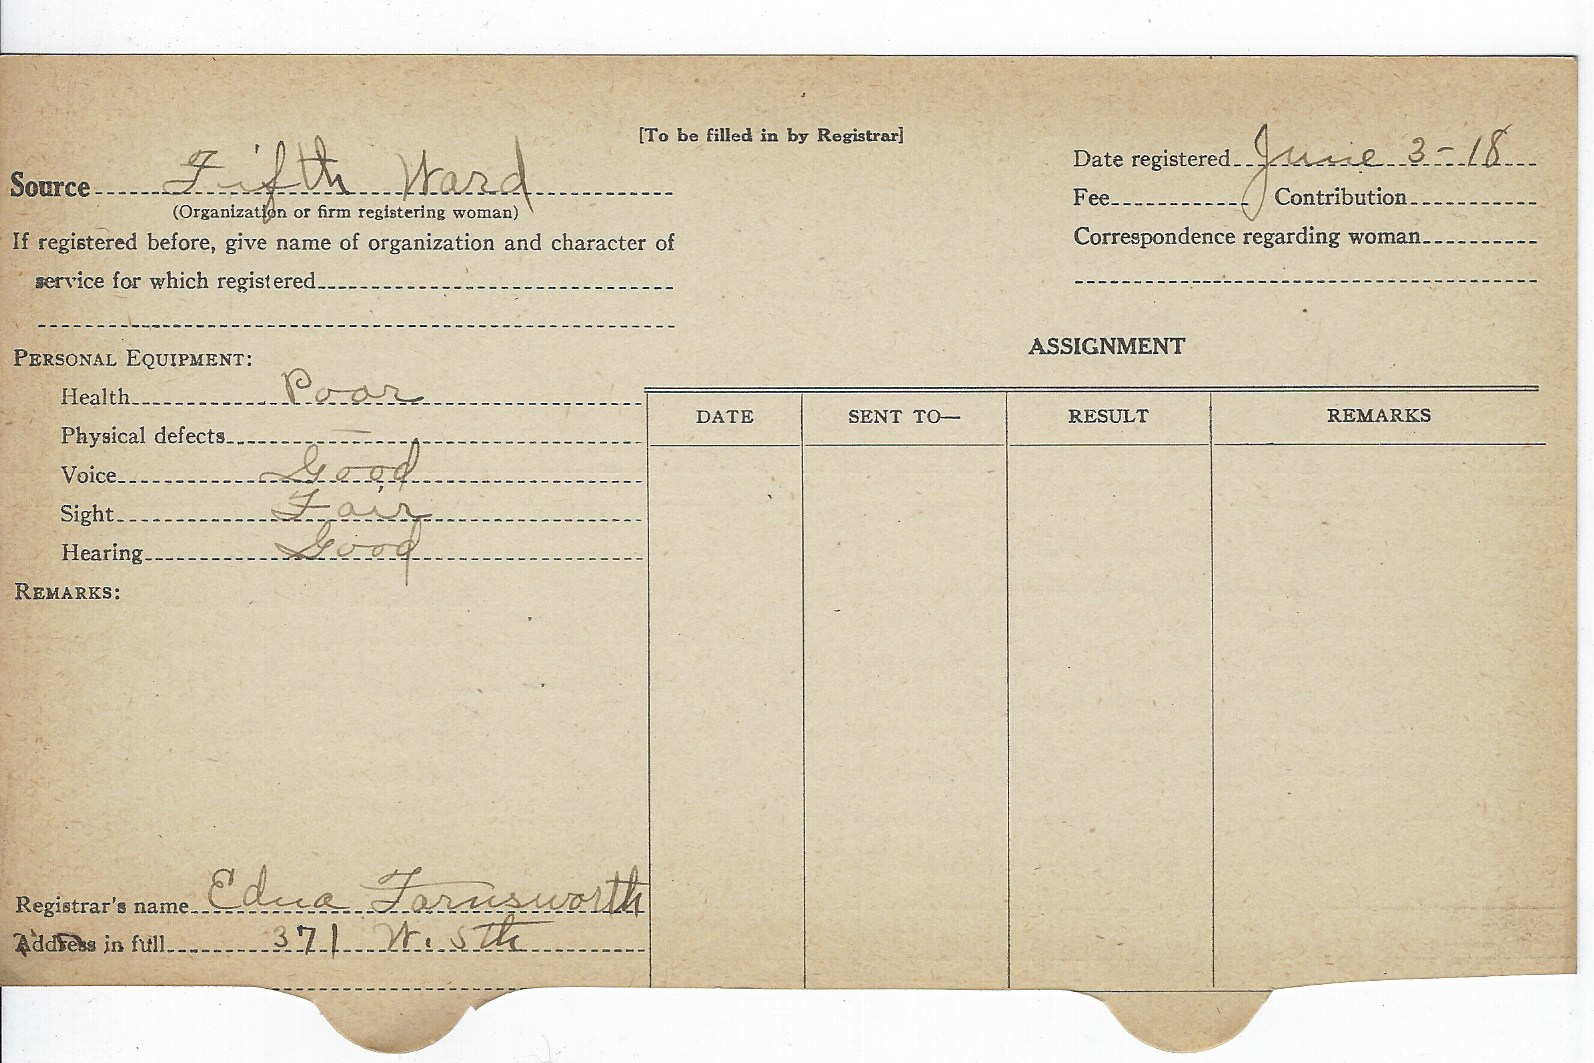 [To be filled in by Registrar]
Source Fifth Ward
(Organization or firm registering woman)
If registered before, give name of organization and character of
service for which registered
Date registered June 3-18
Fee Contribution
Correspondence regarding woman
PERSONAL EQUIPMENT:
Health Poor
Physical defects —
Voice Good
Sight Fair
Hearing Good
REMARKS:
ASSIGNMENT
DATE SENT TO— RESULT REMARKS
Registrar's name Edna Farnsworth
Address in full 371 W. 5th